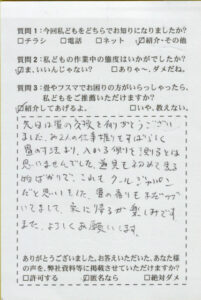 質問1：今回私どもをどちらでお知りになりましたか?
□チラシ □電話 □ネット ☑紹介・その他
質問2：私どもの作業中の態度はいかがでしたか?
☑ま、いいんじゃない? □ありゃ～、ダメだね。
質問3：畳やフスマでお困りの方がいらっしゃったら、
私どもをご推薦いただけますか?
☑紹介してあげるよ。 □いや、教えない。
先日は畳の交換を有りがとうござい
ました。お二人の仕事振りもすばらしく
畳の寸法より、入れる側を測るとは
思いませんでした。道具もそれぞれ見る
物ばかりで、これもクールジャパン
だと思いました。畳の香りもまだつづ
いてまして、家に帰るが楽しみです。
また、よろしくお願います。
ありがとうございました。お答えいただいた、あなた様
の声を、弊社資料等に掲載させていただけますか?
□許可する ☑匿名なら □絶対ダメ